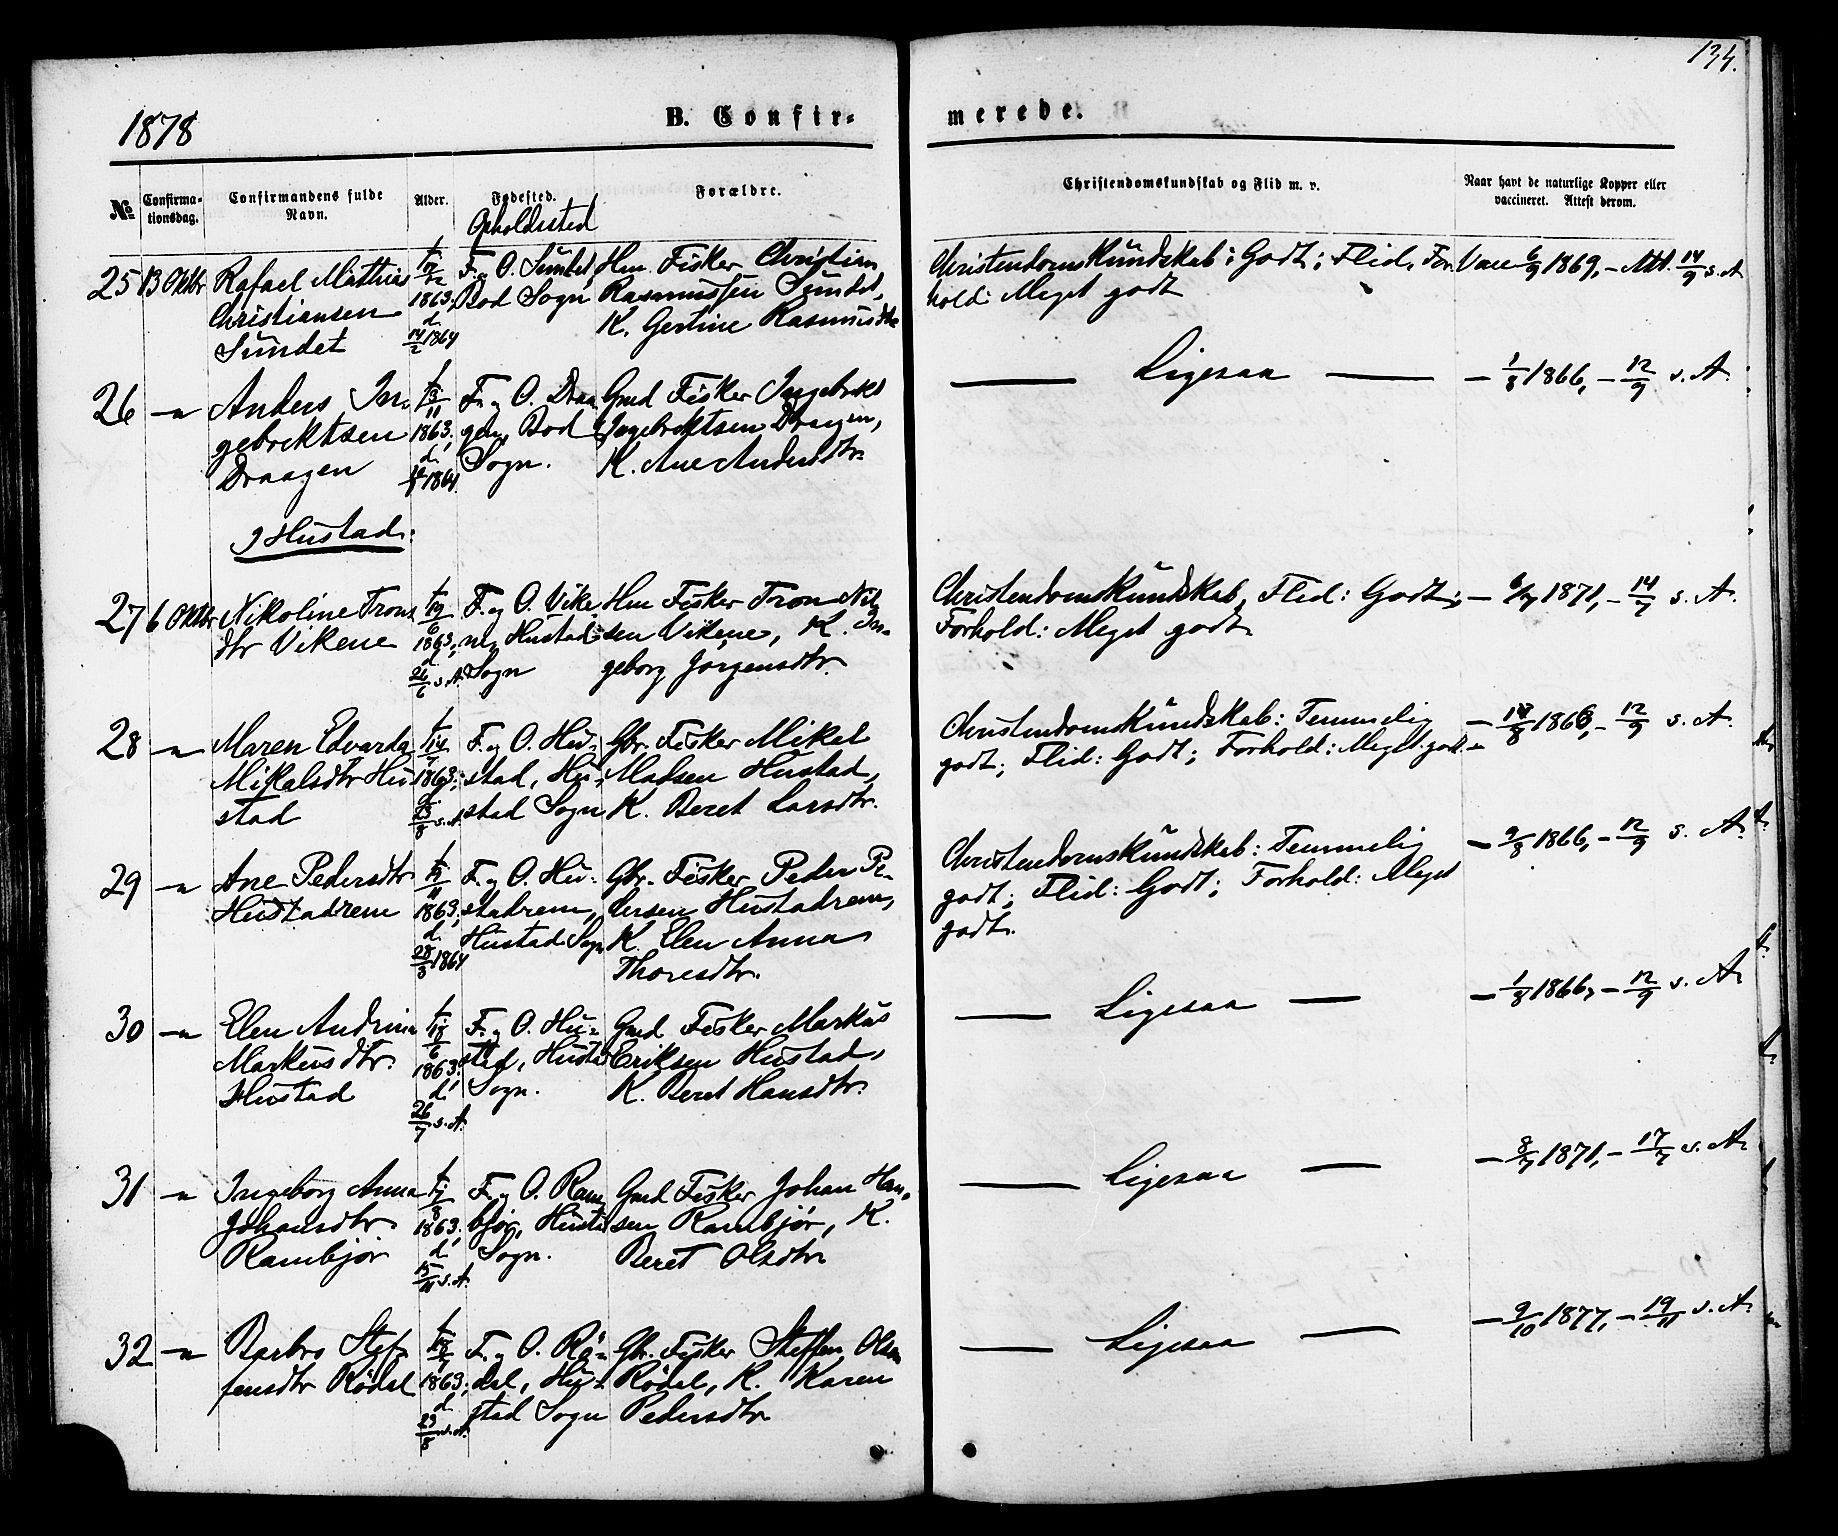 134.
1878
B. Confir-
merede.
№
Confirma-
tionsdag.
Confirmandens fulde
Navn.
Alder.
Fødested.
Opholdssted
Forældre.
Christendomskundskab og Flid m. v.
Naar havt de naturlige Kopper eller
vaccineret. Attest derom.
25 13 Oktbr Rafael Mathias
Christiansen
Sundet
1863,
d.
14/2 1864
F. og O. Sundet,
Bod Sogn
Gm. Fisker Christian
Rasmussen Sundet,
K. Gertine Rasmusdtr
Christendomskundskab: Godt; Flid, For-
hold: Meget godt
Vacc 6/9 1869, - Att. 14/9 s. A
26 -"- Anders In-
gebrektsen
Draagen
f. 13/11
1863,
d.
1864.
F. og O. Draa-
gen, Bod
Sogn.
Gmd Fisker Ingebrekt
Ingebrektsen Draagen,
K. Ane Andersdtr.
Ligesaa
- 1/8 1866, - 12/9 s. A.
I Hustad:
27 6 Oktbr Nikoline Trons-
dtr Vikene
1863,
d.
24/6 s. A.
F. og O. Vike
ne, Hustad
Sogn
Gm Fisker Tron Nil-
sen Vikene, K. In-
geborg Jørgensdtr.
Christendomskundskab, Flid: Godt;
Forhold: Meget godt.
- 6/7 1871, - 14/7 s. A.
28 -"- Maren Edvarda
Mikalsdtr Hu-
stad
1863,
d.
23/8 s. A.
F. og O. Hu-
stad, Hu-
stad Sogn
Gbr. Fisker Mikel
Madsen Hustad,
K. Beret Larsdtr.
Christendomskundskab: Temmelig
godt; Flid: Godt; Forhold: Meget godt.
- 14/8 1866, - 12/9 s. A.
29 -"- Ane Pedersdtr
Hustadrem
1863,
d.
28/3 1864
F. og O. Hu-
stadrem,
Hustad Sogn
Gbr. Fisker Peder Pe-
dersen Hustadrem,
K. Elen Anna
Thoresdtr.
Christendomskundskab: Temmelig
godt; Flid: Godt; Forhold: Meget
godt.
- 9/8 1866, - 12/9 s. A.
30 -"- Elen Andrine
Markusdtr.
Hustad
1863,
d.
26/7 s. A.
F. og O. Hu-
stad, Hustad
Sogn.
Gmd. Fisker Markus
Eriksen Hustad,
K. Beret Hansdtr.
Ligesaa
- 1/8 1866, - 12/9 s. A.
31 -"- Ingeborg Anna
Johansdtr.
Rambjør
1863,
d.
15/11 s. A.
F. og O. Ram-
bjør, Hustad
Sogn.
Gmd Fisker Johan Han-
sen Rambjør, K.
Beret Olsdtr.
Ligesaa
- 8/7 1871, - 17/7 s. A.
32 -"- Barbro Stef-
fensdtr Rødal
1863,
d.
23/8 s. A.
F. og O. Rø-
dal, Hu-
stad Sogn
Gbr. Fisker Steffen Olsen
Rødal, K. Karen
Pedersdtr
Ligesaa
- 9/10 1877, - 19/11 s. A.